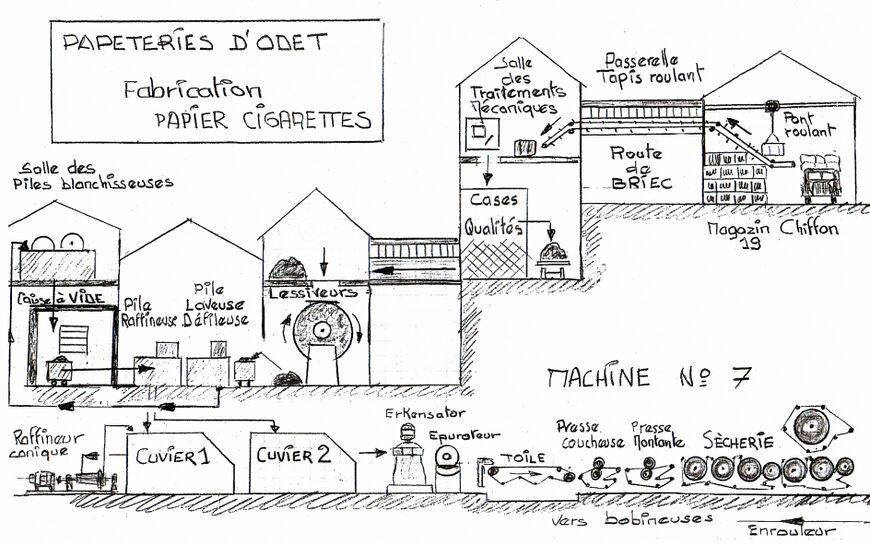 PAPETERIES D'ODET
Fabrication
PAPIER CIGARETTES
Salle des
Piles blanchisseuses
Salle
des
Traitements
Mécaniques
Passerelle
Tapis roulant
Pont
roulant
Route
de
BRIEC
Cases
Qualités
Magazin Chiffon
19
Caisse à VIDE
Pile
Raffineuse
Pile
Laveuse
Défileuse
Lessiveurs
MACHINE No 7
Raffineur
conique
CUVIER 1
CUVIER 2
Erkensator
Epurateur
TOILE
Presse
coucheuse
Presse
Montante
SÈCHERIE
vers bobineuses
Enrouleur